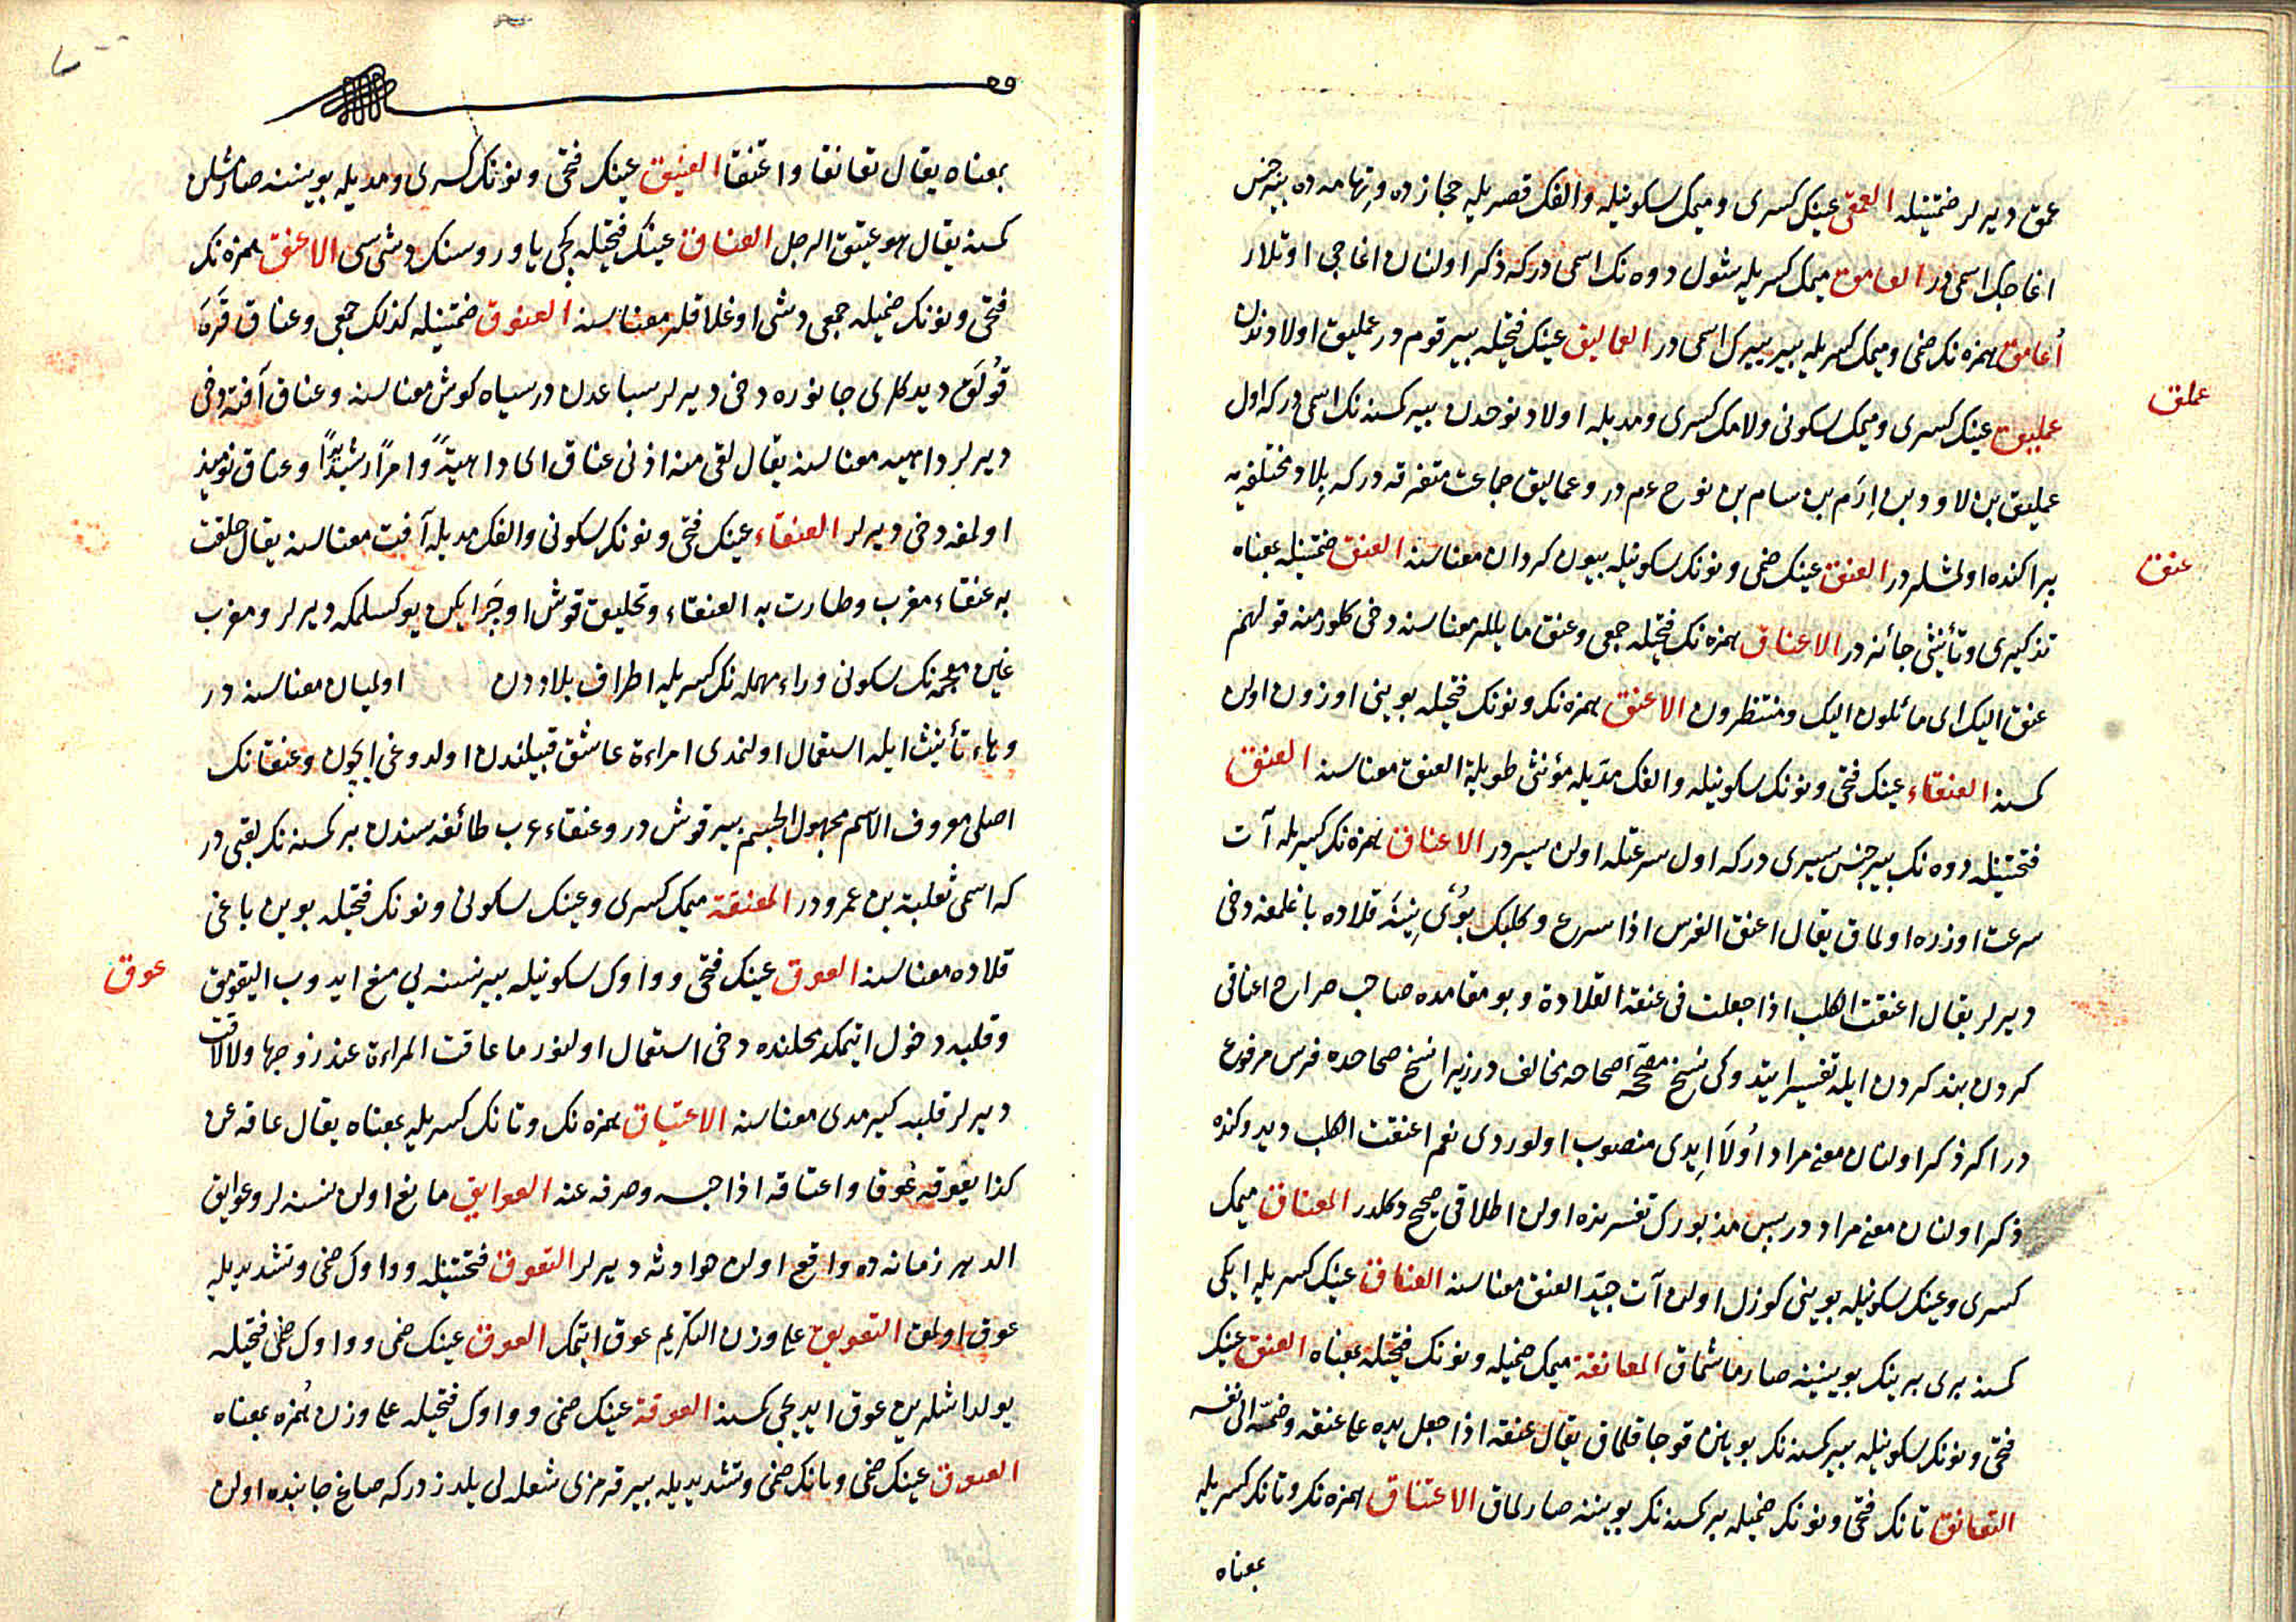 عمق ديرلر ضمتينله العمقى عينك كسرى وميمك سكونيله والفك قصريله حجازده وتهامه ده بتر جنس
اغاجك اسمى در العامق ميمك كسريله شول دوه نك اسمى در كه ذكر اولنان اغاجى اوتلار
أعامق همزه نك ضمى وميمك كسريله بير يرك اسمى در العماليق عينك فتحيله بير قوم در عمليق اولادندن
عملق
عمليق عينك كسرى وميمك سكونى ولامك كسرى ومديله اولاد نوحدن بير كسنه نك اسمى در كه اول
عمليق بن لاوود بن إرَم بن سام بن نوح عم در وعماليق جماعت متفرقه در كه بِلاد مختلفه يه
عنق
پراكنده اولمشلردر العنق عينك ضمى ونونك سكونيله بيون كردان معناسنه العنق ضمتينله بمعناه
تذكيرى وتأنيثى جائزدر الاعناق همزه نك فتحيله جمعى وعنق مايللر معناسنه دخى كلور منه قولهم
عنق اليك اى مائلون اليك ومنتظرون الاعنق همزه نك ونونك فتحيله بوينى اوزون اولان
كسنه العنقاء عينك فتحى ونونك سكونيله والفك مدّيله مؤنثى طويلة العنق معناسنه العنق
فتحتينله دوه نك بير جنس سيرى در كه اول سرعتله اولان سيردر الاعناق همزه نك كسريله آت
سرعت اوزره اولماق يقال اعنق الفرس اذا سرع وكلبك بوينينه قلاده باغلمغه دخى
ديرلر يقال اعنقت الكلب اذا جعلت فى عنقه القلادة وبو مقامده صاحب صراح اعناقى
كردن بند كردن ايله تفسير ايتدوكى نسخ مصحّحه صحاحه مخالف در زيرا نسخ صحاحده فرس مرفوع
در اكر ذكر اولنان معنى مراد أولا ايدى منصوب اولوردى نعم اعنقت الكلب ديدوكنده
ذكر اولنان معنى مراد در پس مذبورك تفسرنده اولان اطلاقى صحيح دكلدر المعناق ميمك
كسرى وعينك سكونيله بوينى كوزل اولان آت جيّد العنق معناسنه العناق عينك كسريله ايكى
كسنه برى برينك بوينينه صارماشماق المعانقة ميمك ضميله ونونك فتحيله بمعناه العنق عينك
فتحى ونونك سكونيله بير كسنه نك بوينن قوجاقلماق يقال عنقه اذا جعل يده على عنقه وضمّه الى نفسه
التعانق تانك فتحى ونونك ضميله بر كسنه نك بويننه صارلماق الاعتناق همزه نك وتانك كسريله
بمعناه
بمعناه يقال تعانقا واعتنقا العنيق عينك فتحى ونونك كسرى ومديله بويننه صارمشلن
كسنه يقال هو عنيق الرجل العناق عينك فتحيله كچى ياوروسنك دشى سى الاعنق همزه نك
فتحى ونونك ضميله جمعى دشى اوغلاقلر معناسنه العنوق ضمتينله كذلك جمعى وعناق قَرَه
قُولَق ديدكلرى جانوره دخى ديرلر سباعدن در سياه كوش معناسنه وعناق آفته دخى
ديرلر داهيه معناسنه يقال لقى منه اذنى عناق اى داهيةً وامرًا شديدًا وعناق نوميذ
اولمغه دخى ديرلر العنقاء عينك فتحى ونونك سكونى والفك مديله آفت معناسنه يقال حلقت
به عنقاء مغرب وطارت به العنقاء وتحليق قوش اوچرايكن يوكسلمكه ديرلر ومغرب
غين معجمه نك سكونى وراء مهمله نك كسريله اطراف بلاددن اولميان معناسنه در
وهاء تأنيث ايله استعمال اولنمدى امراءة عاشق قبيلندن اولدوغى ايچون وعنقانك
اصلى معروف الاسم مجهول الجسم بير قوش در وعنقاء عرب طائفه سندن بر كسنه نك لقبى در
كه اسمى ثعلبة بن عمرودر المعنقة ميمك كسرى وعينك سكونى ونونك فتحيله بوين باغى
عوق
قلاده معناسنه العوق عينك فتحى وواوك سكونيله بير نسنه يى منع ايدوب اليقومق
وقلبه دخول ايتمك محلنده دخى استعمال اولنور ما عاقت المراءة عند زوجها ولا لاقت
ديرلر قلبه كيرمدى معناسنه الاعتياق همزه نك وتانك كسريله بمعناه يقال عاقه عن
كذا يعُوقه عَوقا واعتاقه اذا حبسه وصرفه عنه العوايق مانع اولان نسنه لر وعوايق
الدهر زمانه ده واقع اولان حوادثه ديرلر التعوق فتحتينله وواوك ضمى وتشديديله
عوق اولمق التعويق على وزن التكريم عوق ايتمك العوق عينك ضمى وواوك فتحيله
يولداشلرين عوق ايديجى كسنه العوقة عينك ضمى وواوك فتحيله على وزن هُمزه بمعناه
العيوق عينك ضمى ويانك ضمى وتشديديله بير قرمزى شعله لى يلدزدر كه صاغ جانبنده اولان